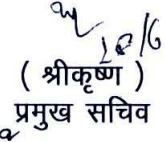 20/6
( श्रीकृष्ण )
प्रमुख सचिव